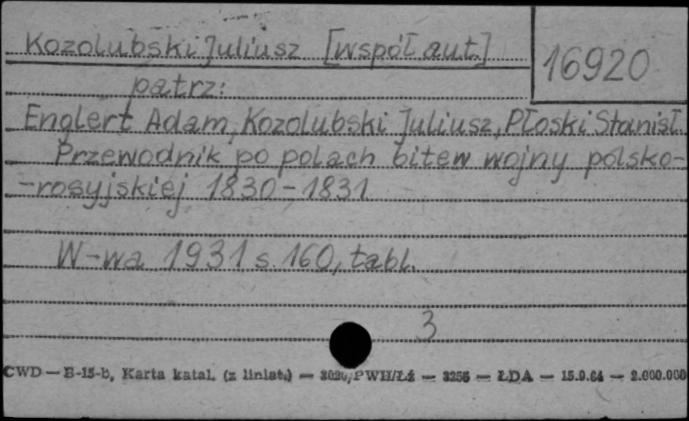 Kozolubski Juliusz [współ aut.]
16920
patrz:
Englert Adam, Kozolubski Juliusz, Płoski Stanisł.
Przewodnik po polach bitew wojny polsko-
-rosyjskiej 1830-1831
W-wa 1931 s. 160, tabl.
3
CWD — B-15-b, Karta katal. (z liniat.) — PWH/Łź — 3256 — ŁDA — 15.9.64 — 2.000.000